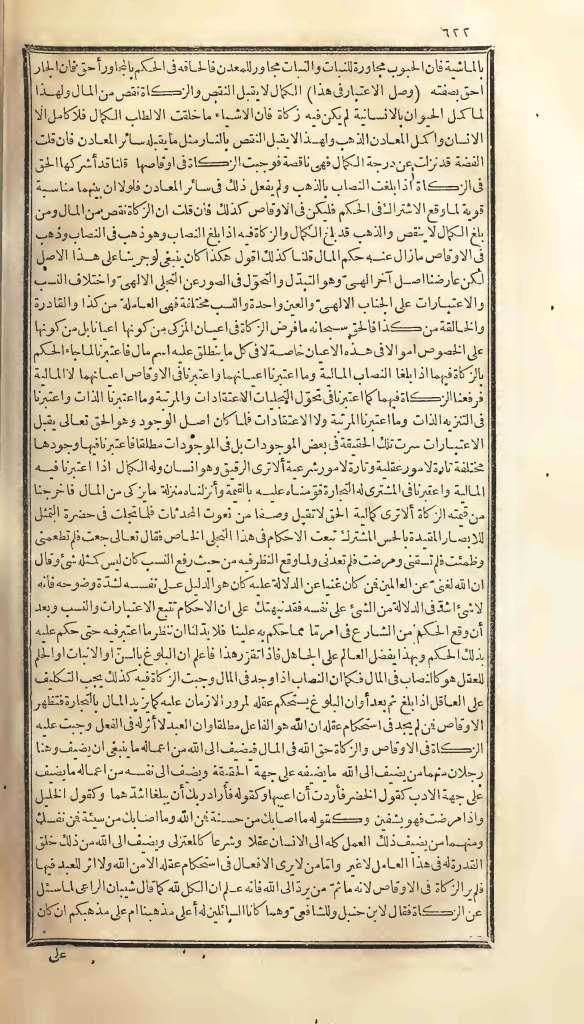 ٦٢٢
بالماشية فان الحبوب مجاورة للنبات والنبات مجاور للمعدن فالحاقه فى الحكم بالمجاور أحق فان الجار
احق بصفته (وصل الاعتبار فى هذا) الكمال لا يقبل النقص والزكاة نقص من المال ولهذا
لما كمل الحيوان بالانسانية لم يكن فيه زكاة فان الاشياء ما خلقت الا لطلب الكمال فلا كامل الا
الانسان واكمل المعادن الذهب ولهذا لا يقبل النقص بالنار مثل ما يقبله سائر المعادن فان قلت
الفضة قد نزلت عن درجة الكمال فهى ناقصة فوجبت الزكاة فى اوقاصها قلنا قد أشركها الحق
فى الزكاة اذا بلغت النصاب بالذهب ولم يفعل ذلك فى سائر المعادن فلولا ان بينهما مناسبة
قوية لما وقع الاشتراك فى الحكم فليكن فى الاوقاص كذلك فان قلت ان الزكاة نقص من المال ومن
بلغ الكمال لا ينقص والذهب قد بلغ الكمال والزكاة فيه اذا بلغ النصاب وهو ذهب فى النصاب وذهب
فى الاوقاص ما زال عنه حكم المال قلنا كذلك اقول هكذا كان ينبغى لو جرينا على هذا الاصل
لكن عارضنا اصل آخر الهى وهو التبدّل والتحوّل فى الصور عن التجلى الالهى واختلاف النسب
والاعتبارات على الجناب الالهى والعين واحدة والنسب مختلفة فهى العاملة من كذا والقادرة
والخالقة من كذا فالحق سبحانه ما فرض الزكاة فى اعيان المزكى من كونها اعيانا بل من كونها
على الخصوص اموالا فى هذه الاعيان خاصة لا فى كل ما ينطلق عليه اسم مال فاعتبرنا لما جاء الحكم
بالزكاة فيهما اذا بلغا النصاب المالية وما اعتبرنا اعيانهما واعتبرنا فى الاوقاص اعيانهما لا المالية
فرفعنا الزكاة فيهما كما اعتبرنا فى تحوّل التجليات الاعتقادات والمرتبة وما اعتبرنا الذات واعتبرنا
فى التنزيه الذات وما اعتبرنا المرتبة ولا الاعتقادات فلما كان اصل الوجود وهو الحق تعالى يقبل
الاعتبارات سرت تلك الحقيقة فى بعض الموجودات بل فى الموجودات مطلقا فاعتبرنا فيها وجوها
مختلفة تارة لامور عقلية وتارة لامور شرعية ألا ترى الرقيق وهو انسان وله الكمال اذا اعتبرنا فيه
المالية واعتبرنا فى المشترى له التجارة قوّمناه عليه بالقيمة وأنزلناه منزلة ما يزكى من المال فاخرجنا
من قيمته الزكاة ألا ترى كمالية الحق لا تقبل وصفا من نعوت المحدثات فلما تجلت فى حضرة التمثل
للابصار المقيدة بالحس المشترك تبعت الاحكام فى هذا التجلى الخاص فقال تعالى جعت فلم تطعمنى
وظمئت فلم تسقنى ومرضت فلم تعدنى ولما وقع النظر فيه من حيث رفع النسب كان ليس كمثله شئ وقال
ان الله لغنى عن العالمين فمن كان غنيا عن الدلالة عليه كان هو الدليل على نفسه لشدّة وضوحه فانه
لا شئ اشدّ فى الدلالة من الشئ على نفسه فقد نبهتك على ان الاحكام تتبع الاعتبارات والنسب وبعد
أن وقع الحكم من الشارع فى امر تما مما حكم به علينا فلا بدّ لنا ان ننظر ما اعتبر فيه حتى حكم عليه
بذلك الحكم وبهذا يفضل العالم على الجاهل فاذا تقرّر هذا فاعلم ان البلوغ بالسنّ او الانبات او الحلم
للعقل هو كالنصاب فى المال فكما ان النصاب اذا وجد فى المال وجبت الزكاة فيه كذلك يجب التكليف
على العاقل اذا بلغ ثم بعد أوان البلوغ يستحكم عقله لمرور الازمان عليه كما يزيد المال بالتجارة فتظهر
الاوقاص فمن لم يجد فى استحكام عقله ان الله هو الفاعل مطلقا وان العبد لا أثر له فى الفعل وجبت عليه
الزكاة فى الاوقاص والزكاة حق الله فى المال فيضيف الى الله من اعماله ما ينبغى ان يضيف وهنا
رجلان منهما من يضيف الى الله ما يضيفه على جهة الحقيقة ويضيف الى نفسه من اعماله ما يضيف
على جهة الادب كقول الخضر فأردت أن اعيبها وكقوله فأراد ربك أن يبلغا اشدّهما وكقول الخليل
واذا مرضت فهو يشفين وكقوله ما اصابك من حسنة فمن الله وما اصابك من سيئة فمن نفسك
ومنهما من يضيف ذلك العمل كله الى الانسان عقلا وشرعا كالمعتزلى ويضيف الى الله من ذلك خلق
القدرة له فى هذا العامل لا غير واما من لا يرى الافعال فى استحكام عقله الا من الله ولا اثر للعبد فيها
فلم ير الزكاة فى الاوقاص لانه ما ثمّ من يردّ الى الله فانه علم ان الكل لله كما قال شيبان الراعى لما سئل
عن الزكاة فقال لابن حنبل وللشافعى وهما كانا السائلين له أعلى مذهبنا ام على مذهبكم ان كان
على